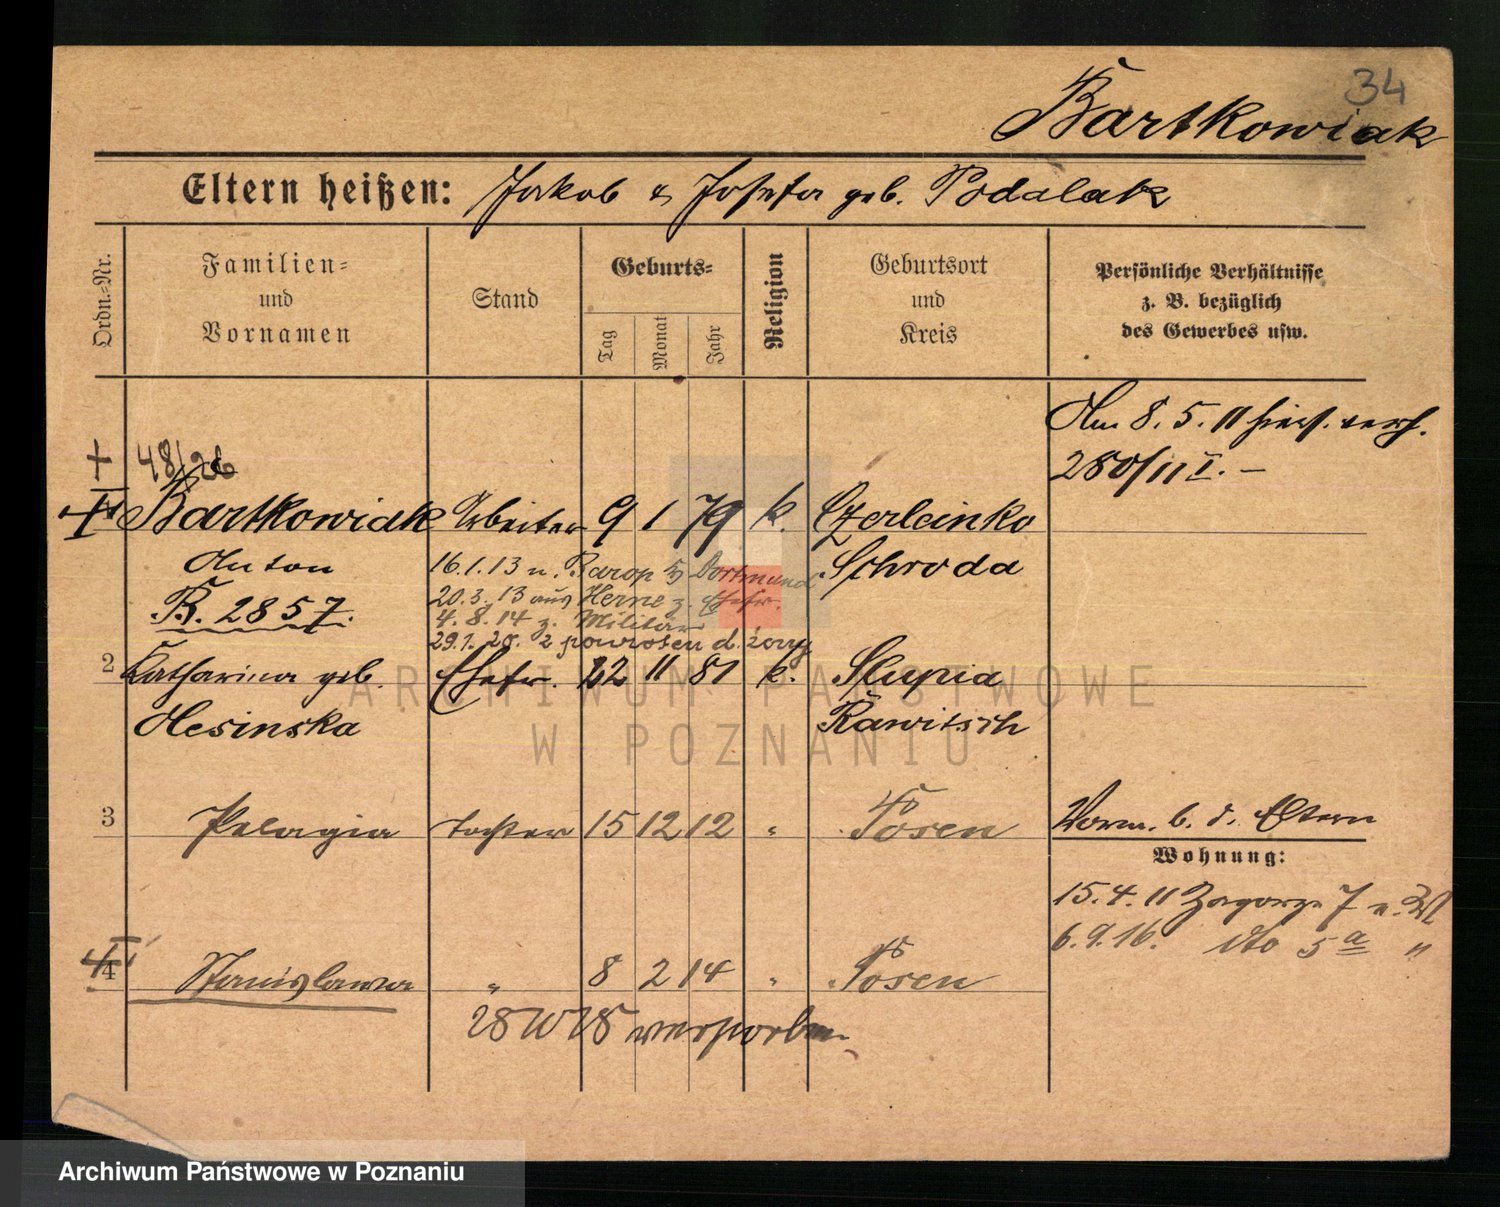 34
Bartkowiak
Eltern heißen: Jakob & Josefa geb. Podalak
Ordn.=Nr.
Familien=
und
Vornamen
Stand
Geburts=
Tag
Monat
Jahr
Religion
Geburtsort
und
Kreis
Persönliche Verhältnisse
z. B. bezüglich
des Gewerbes usw.
Am 8. 5. 11 hier. verh.
280/11 I. –
+ 48/26
Bartkowiak Arbeiter 9 1 79 k. Czerleinko
Anton
Schroda
B. 2857.
16.1.13 n. Barop b/ Dortmund
20.3.13 aus Herne z. Ehefr.
4.8.14 z. Militär
29.1.20. z powrotem d. żony
2 Katharina geb. Ehefr. 22 11 81 k. Slupia
Olesinska Rawitsch
3 Pelagia Tochter 15 12 12 " Posen
Vorm. b. d. Eltern
Wohnung:
15.4.11 Zagorze 7 n.
6.9.16. dto 5a "
4 Stanislawa " 8 2 14 " Posen
verstorben
ARCHIWUM PAŃSTWOWE
W POZNANIU
Archiwum Państwowe w Poznaniu